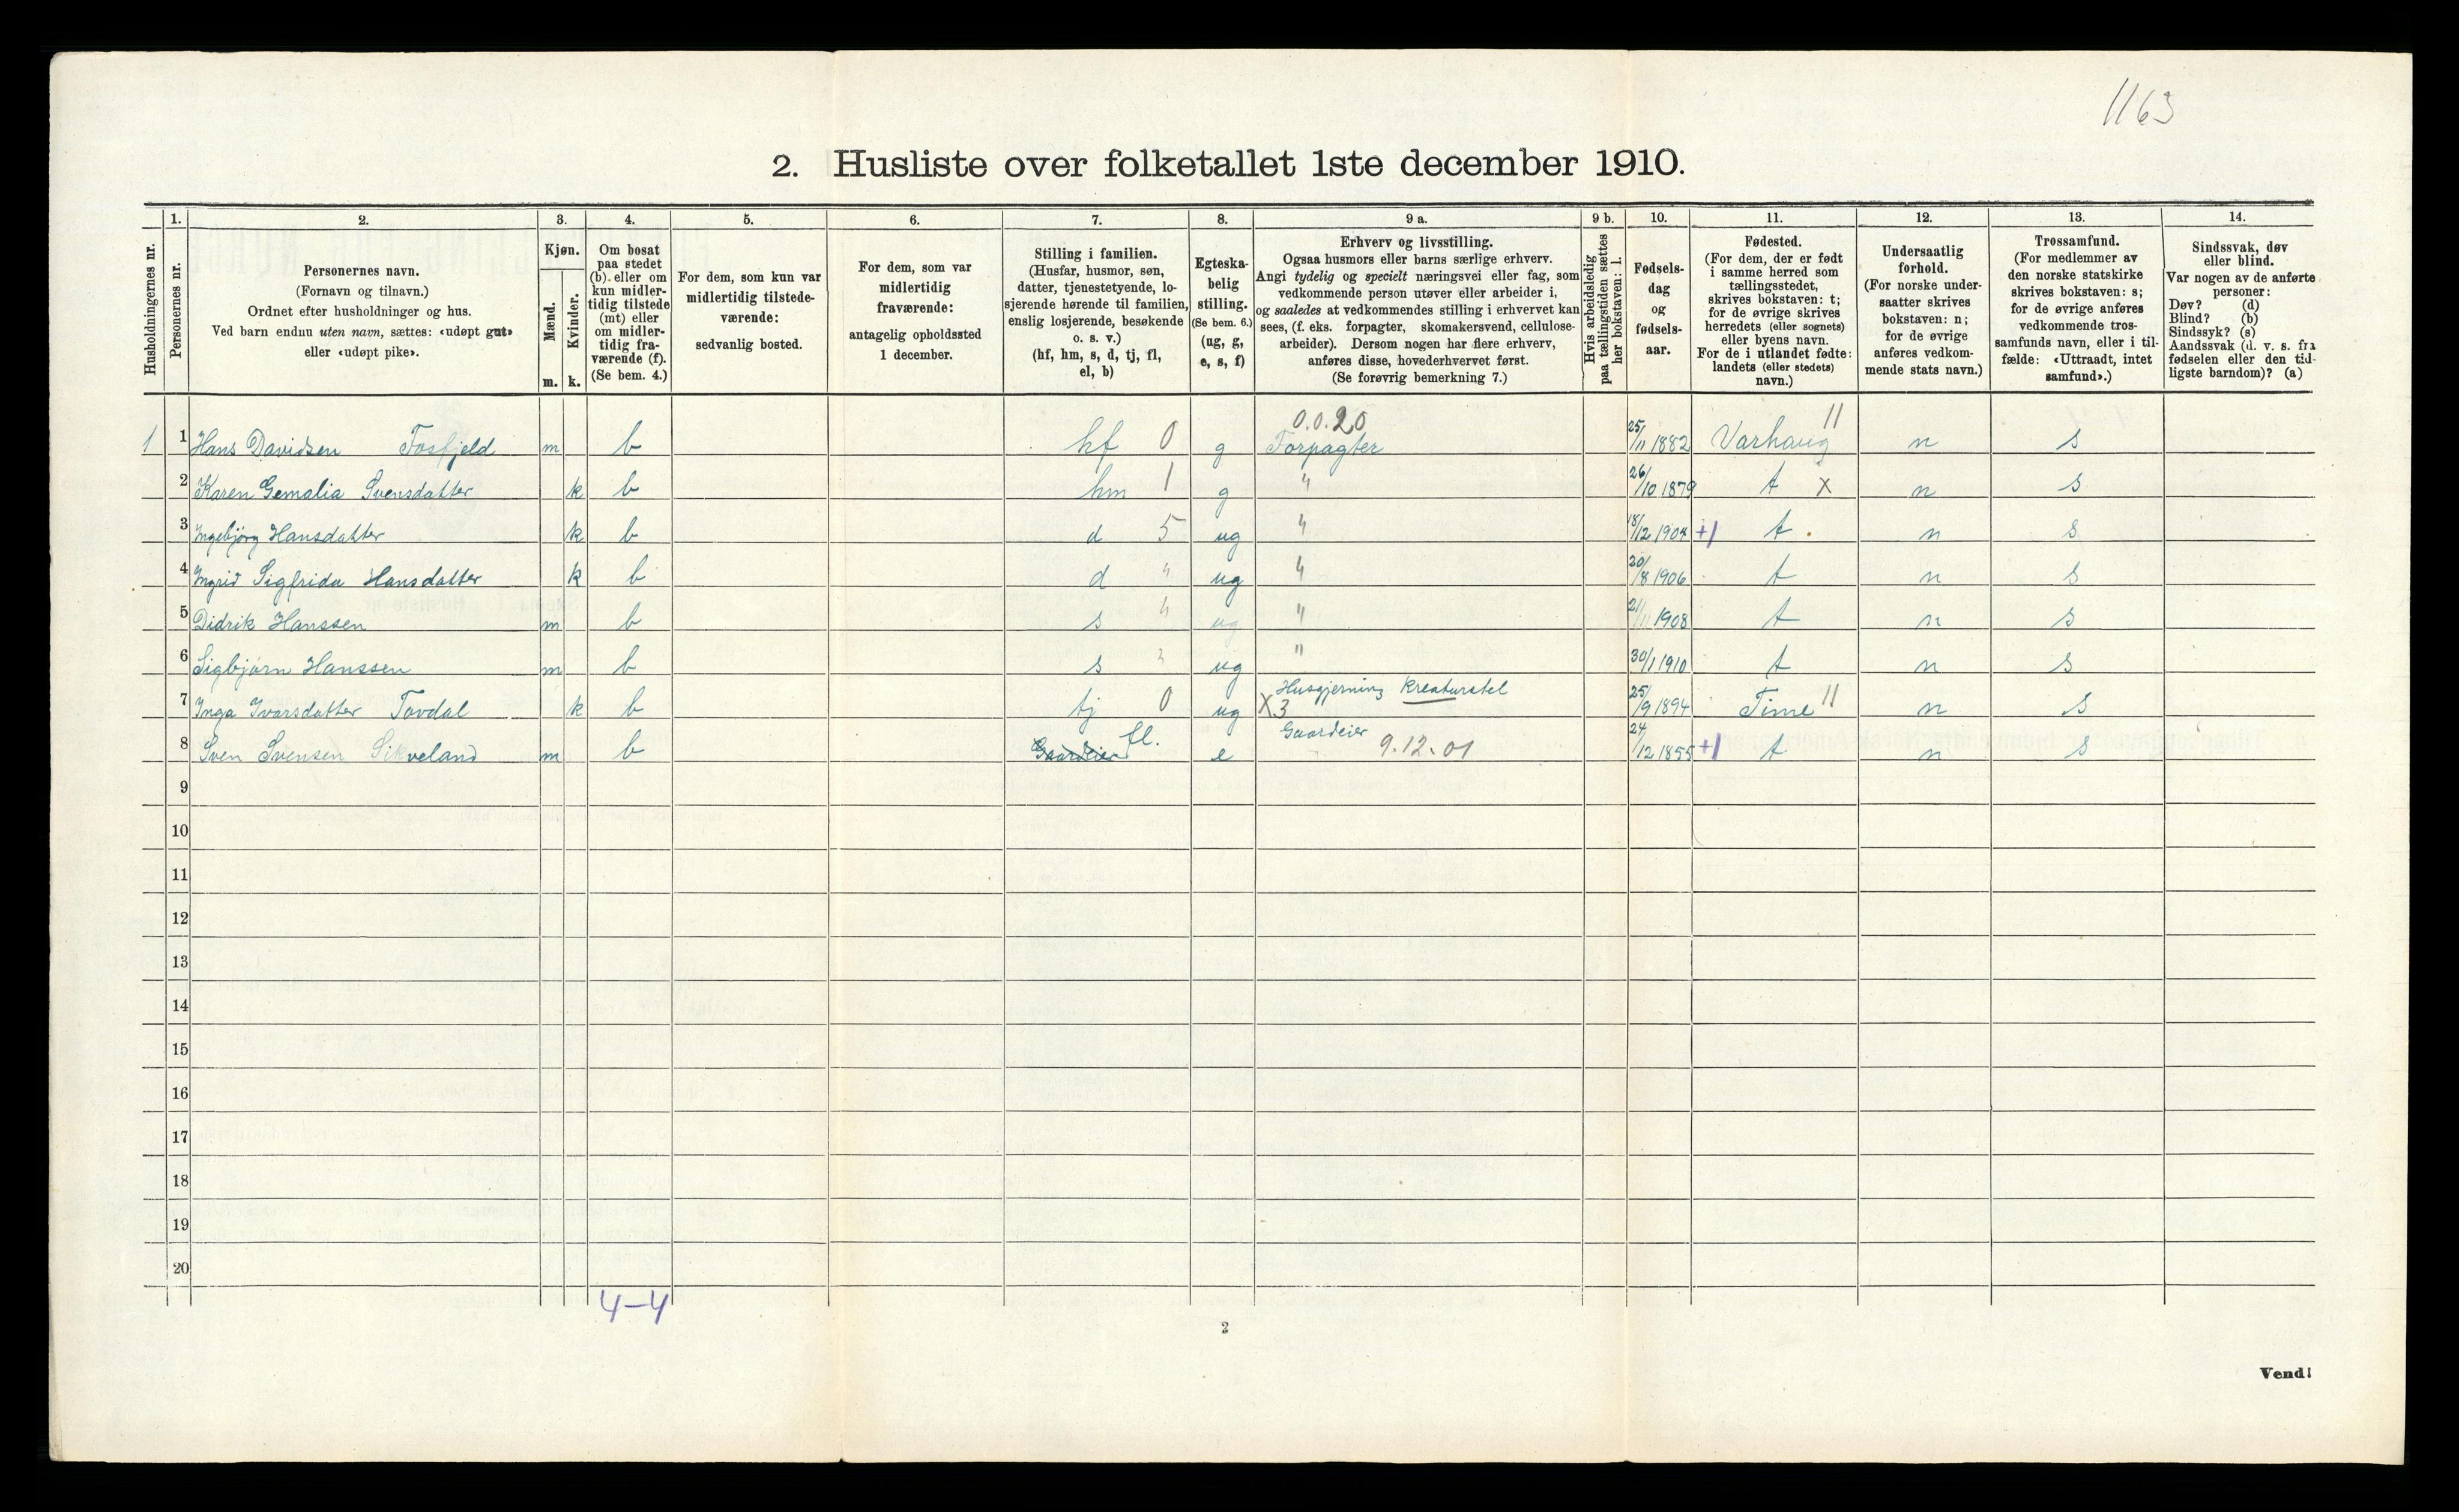 1163
2. Husliste over folketallet 1ste december 1910.
Husholdningernes nr.
1.
Personernes nr.
2.
Personernes navn.
(Fornavn og tilnavn.)
Ordnet efter husholdninger og hus.
Ved barn endnu uten navn, sættes: «udøpt gut»
eller «udøpt pike».
3.
Kjøn.
Mænd.
m.
Kvinder.
k.
4.
Om bosat
paa stedet
(b) eller om
kun midler-
tidig tilstede
(mt) eller
om midler-
tidig fra-
værende (f).
(Se bem. 4.)
5.
For dem, som kun var
midlertidig tilstede-
værende:
sedvanlig bosted.
6.
For dem, som var
midlertidig
fraværende:
antagelig opholdssted
1 december.
7.
Stilling i familien.
(Husfar, husmor, søn,
datter, tjenestetyende, lo-
sjerende hørende til familien,
enslig losjerende, besøkende
o. s. v.)
(hf, hm, s, d, tj, fl,
el, b)
8.
Egteska-
belig
stilling.
(Se bem. 6.)
(ug, g,
e, s, f)
9 a.
Erhverv og livsstilling.
Ogsaa husmors eller barns særlige erhverv.
Angi tydelig og specielt næringsvei eller fag, som
vedkommende person utøver eller arbeider i,
og saaledes at vedkommendes stilling i erhvervet kan
sees, (f. eks. forpagter, skomakersvend, cellulose-
arbeider). Dersom nogen har flere erhverv,
anføres disse, hovederhvervet først.
(Se forøvrig bemerkning 7.)
9 b.
Hvis arbeidsledig
paa tællingstiden sættes
her bokstaven: l.
10.
Fødsels-
dag
og
fødsels-
aar.
11.
Fødested.
(For dem, der er født
i samme herred som
tællingsstedet,
skrives bokstaven: t;
for de øvrige skrives
herredets (eller sognets)
eller byens navn.
For de i utlandet fødte:
landets (eller stedets)
navn.)
12.
Undersaatlig
forhold.
(For norske under-
saatter skrives
bokstaven: n;
for de øvrige
anføres vedkom-
mende stats navn.)
13.
Trossamfund.
(For medlemmer av
den norske statskirke
skrives bokstaven: s;
for de øvrige anføres
vedkommende tros-
samfunds navn, eller i til-
fælde: «Uttraadt, intet
samfund».)
14.
Sindssvak, døv
eller blind.
Var nogen av de anførte
personer:
Døv? (d)
Blind? (b)
Sindssyk? (s)
Aandssvak (d. v. s. fra
fødselen eller den tid-
ligste barndom)? (a)
0.0.20
1 1 Hans Davidsen Fosfjeld m b hf 0 g Forpagter 25/11 1882 Varhaug 11 n s
2 Karen Gemalia Svensdatter k b hm 1 g " 26/10 1879 t x n s
3 Ingebjörg Hansdatter k b d 5 ug " 18/12 1904 +1 t n s
4 Ingrid Sigfrida Hansdatter k b d " ug " 20/8 1906 t n s
5 Didrik Hanssen m b s " ug " 21/11 1908 t n s
6 Sigbjörn Hanssen m b s " ug " 30/1 1910 t n s
7 Inga Ivarsdatter Tovdal k b tj 0 ug X3 Husgjerning Kreaturstel 25/9 1894 Time 11 n s
8 Sven Svensen Sikveland m b Gaardeier fl. e Gaardeier 9.12.01 24/12 1855 +1 t n s
9
10
11
12
13
14
15
16
17
18
19
20
4-4
2
Vend!